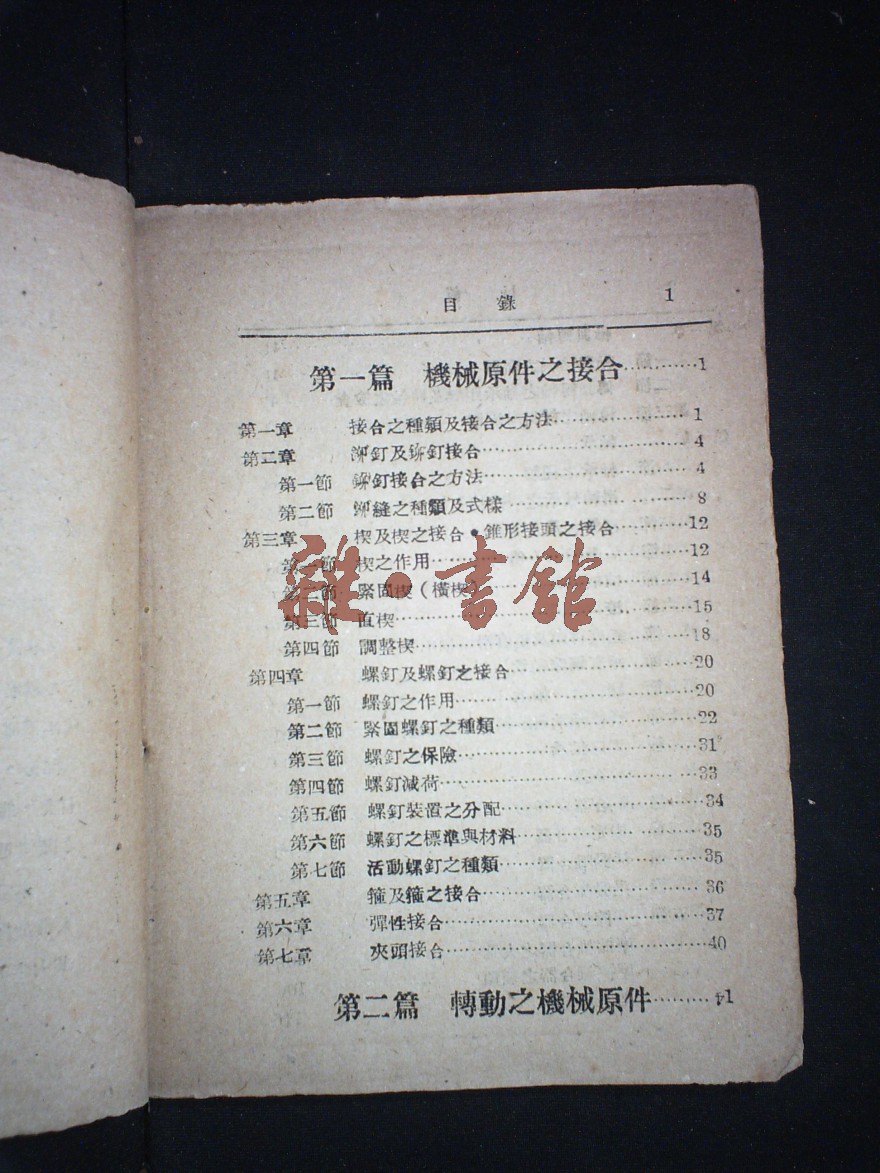 目錄 1
第一篇 機械原件之接合………1
第一章 接合之種類及接合之方法………1
第二章 鉚釘及鉚釘接合………4
第一節 鉚釘接合之方法………4
第二節 鉚縫之種類及式樣………8
第三章 楔及楔之接合·錐形接頭之接合………12
第一節 楔之作用………12
第二節 緊固楔(橫楔)………14
第三節 直楔………15
第四節 調整楔………18
第四章 螺釘及螺釘之接合………20
第一節 螺釘之作用………20
第二節 緊固螺釘之種類………22
第三節 螺釘之保險………31
第四節 螺釘減荷………33
第五節 螺釘裝置之分配………34
第六節 螺釘之標準與材料………35
第七節 活動螺釘之種類………35
第五章 箍及箍之接合………36
第六章 彈性接合………37
第七章 夾頭接合………40
第二篇 轉動之機械原件………41
雜·書館